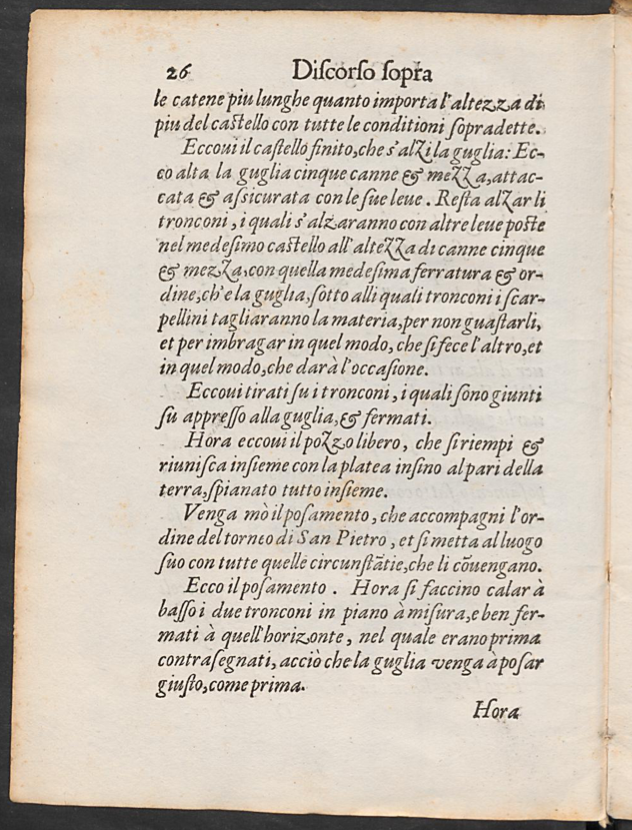 26 Diſcorſo ſopra
le catene piu lunghe quanto importa l'altezza di
piu del caſtello con tutte le conditioni ſopradette.
Eccoui il caſtello finito, che s'alzi la guglia: Ec-
co alta la guglia cinque canne & mezza, attac-
cata & aſsicurata con le ſue leue. Reſta alzar li
tronconi, i quali s'alzaranno con altre leue poſte
nel medeſimo caſtello all'altezza di canne cinque
& mezza, con quella medeſima ferratura & or-
dine, ch'e la guglia, ſotto alli quali tronconi i ſcar-
pellini tagliaranno la materia, per non guaſtarli,
et per imbragar in quel modo, che ſi fece l'altro, et
in quel modo, che darà l'occaſione.
Eccoui tirati ſu i tronconi, i quali ſono giunti
ſu appreſſo alla guglia, & fermati.
Hora eccoui il pozzo libero, che ſi riempi &
riuniſca inſieme con la platea inſino al pari della
terra, ſpianato tutto inſieme.
Venga mò il poſamento, che accompagni l'or-
dine del torneo di San Pietro, et ſi metta al luogo
ſuo con tutte quelle circunſtãtie, che li cõuengano.
Ecco il poſamento. Hora ſi faccino calar à
baſſo i due tronconi in piano à miſura, e ben fer-
mati à quell'horizonte, nel quale erano prima
contraſegnati, acciò che la guglia venga à poſar
giuſto, come prima.
Hora